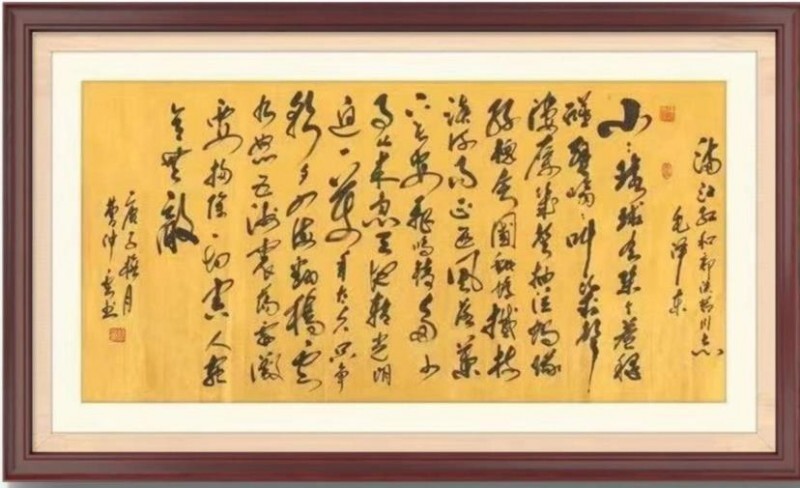 满江红和郭沫若同志
毛泽东
小小环球有几个苍蝇
碰壁嗡嗡叫几声
凄厉几声抽泣蚂蚁缘
槐夸大国蚍蜉撼树
谈何易正西风落叶
下长安飞鸣镝多少
事从来急天地转光阴
迫一万年太久只争
朝夕四海翻腾云
水怒五洲震荡风雷激
要扫除一切害人虫
全无敌
庚子梅月
曹冲书